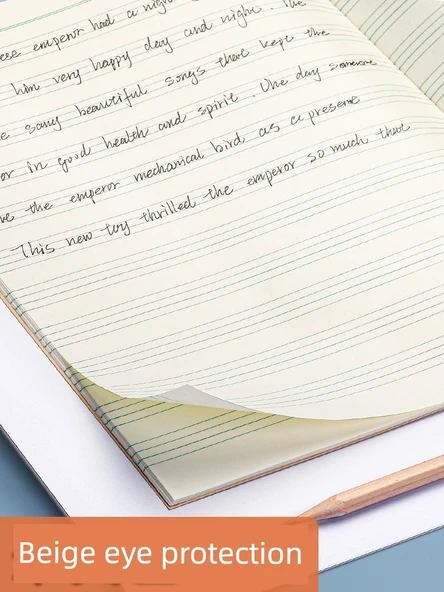 emperor had a night
him very happy day and night. The
e sang beautiful songs that kept the
or in good health and spirit. One day someone
ve the emperor mechanical bird as a present
This new toy thrilled the emperor so much that
Beige eye protection